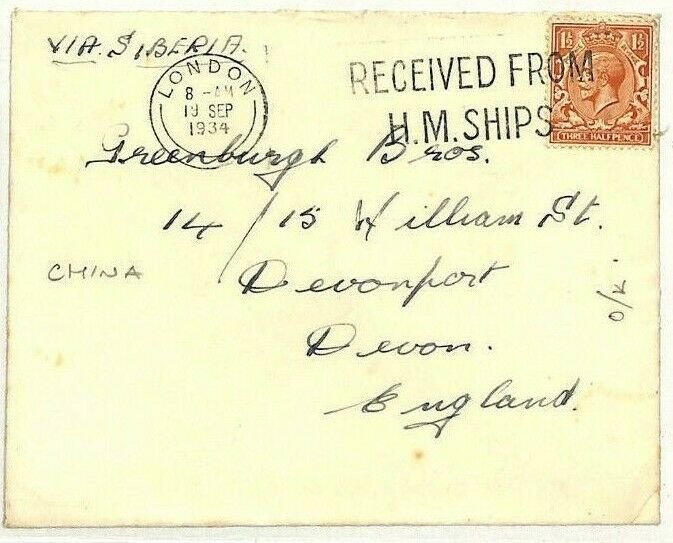 VIA. SIBERIA.
LONDON
8 - AM
19 SEP
1934
RECEIVED FROM
H.M. SHIPS
1½ 1½
THREE HALFPENCE
Greenburgh Bros.
14/15 William St.
Devonport
Devon.
England.
CHINA
O/K.